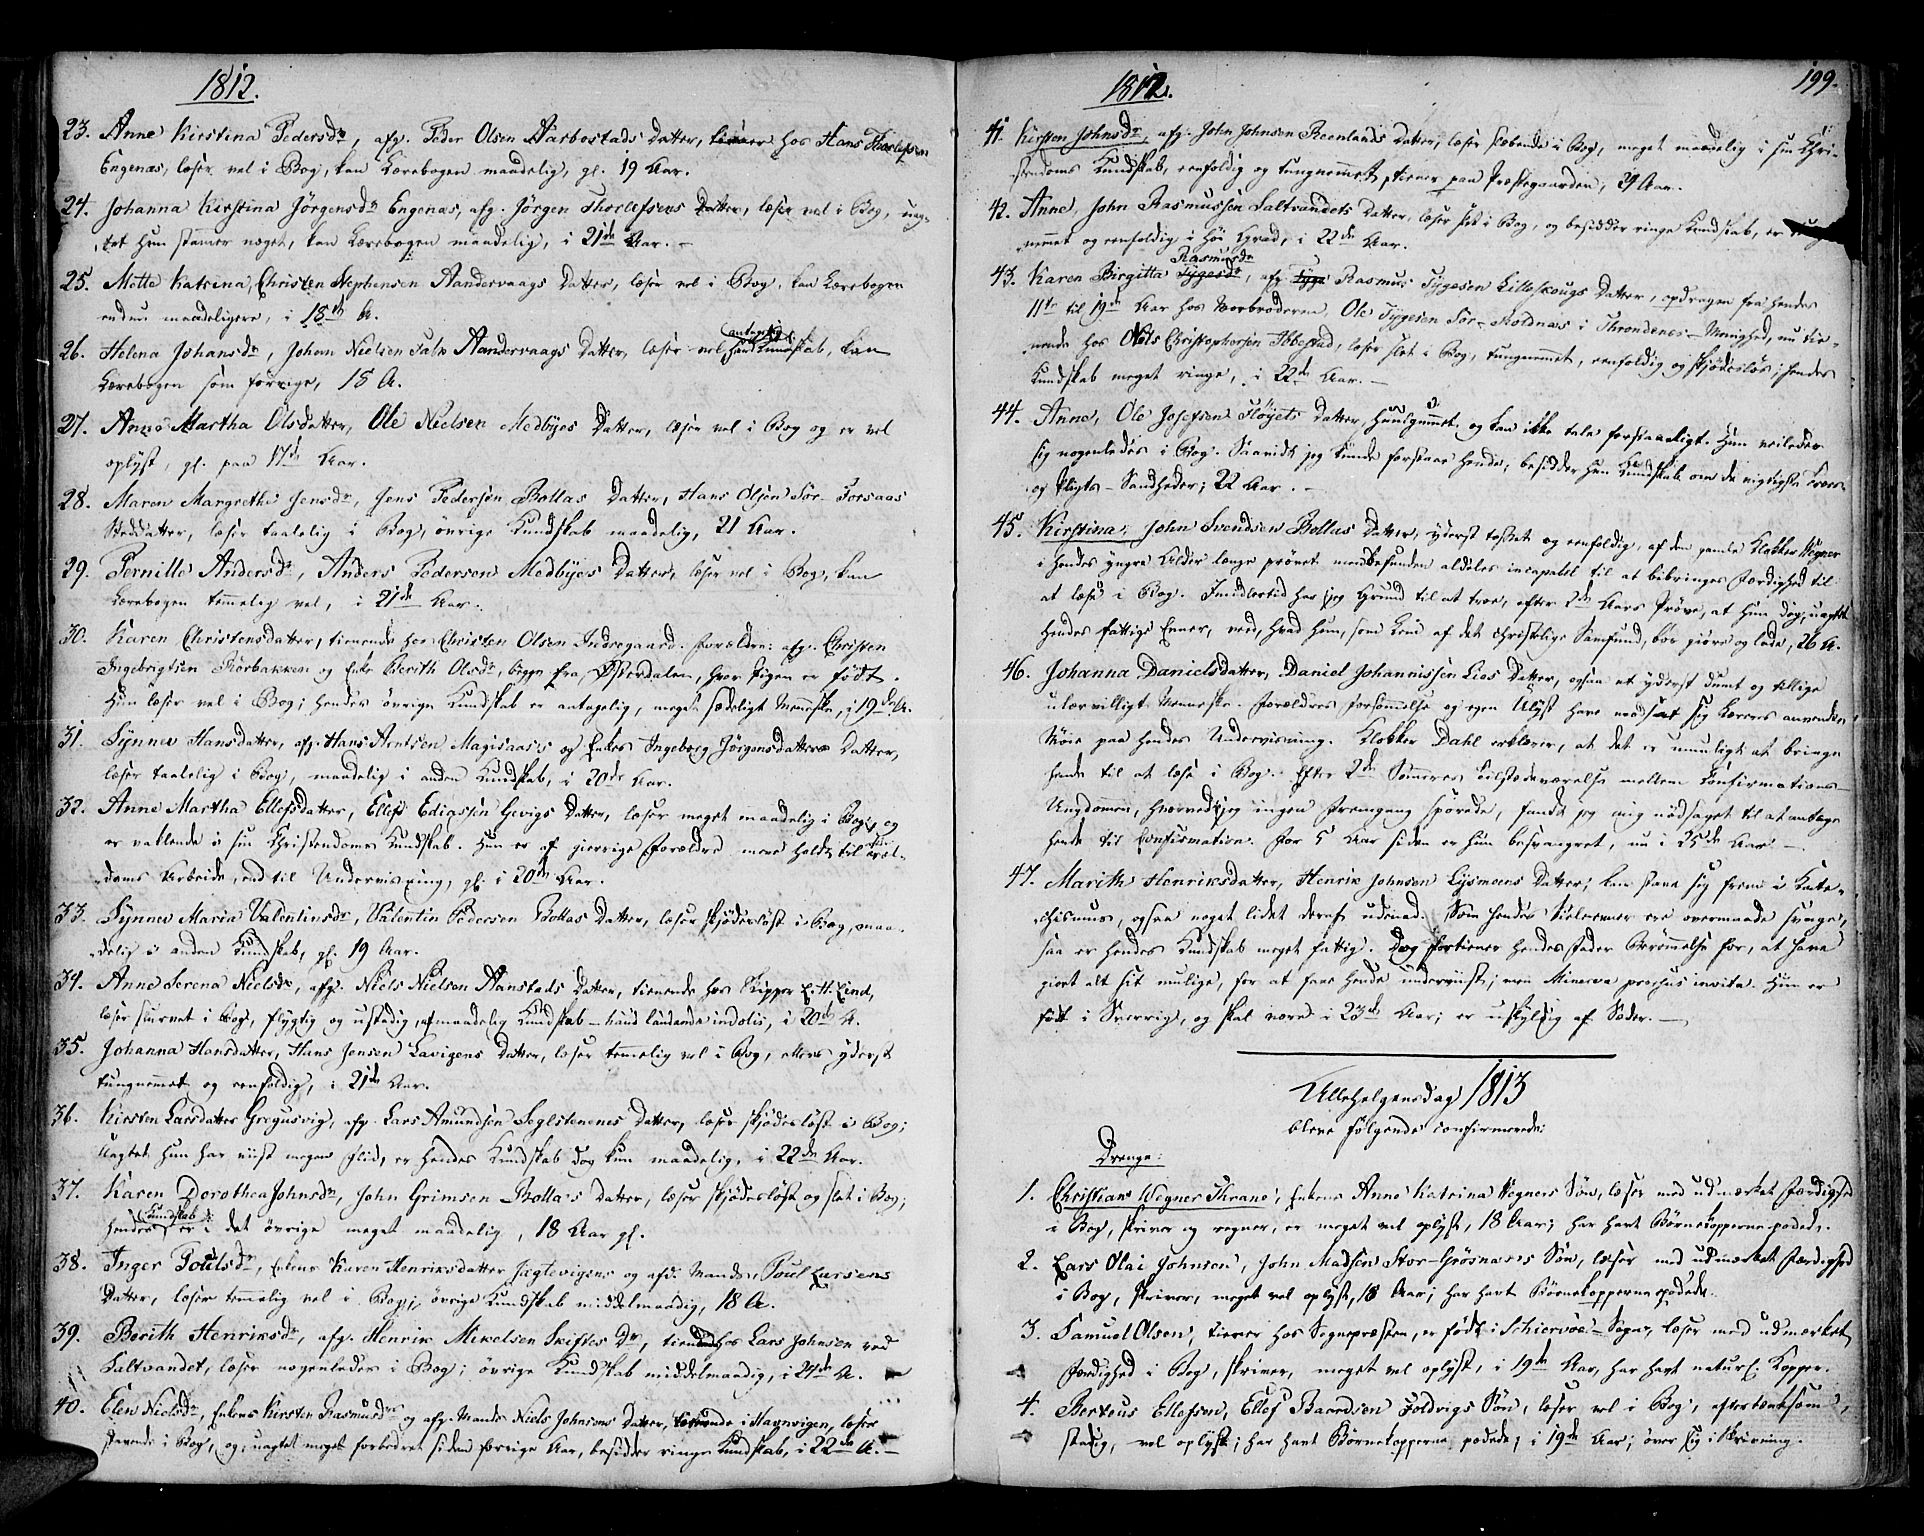 1812.
23. Anne Kirstina Pedersdr, afg. Peder Olsen Aarbostads Datter, hos Hans Thorlefsen
Engenæs, læser vel i Bog, kan Lærebogen maadelig, gl. 19 Aar.
24. Johanna Kirstina Jörgensdr Engenæs, afg. Jörgen Thorlefsens Datter, læser vel i Bog, uag-
tet hun stamer noget, kan Lærebogen maadelig, i 21de Aar. -
25. Mette Katrina, Christen Stephensen Aandervaags Datter, læser vel i Bog, kan Lærebogen
endnu maadeligere, i 18de A.
26. Helena Johansdr, Johan Nielsen Aandervaags Datter, læser vel, har antagelig Kundskab, kan
Lærebogen som forrige, 18 A.
27. Anne Martha Olsdatter, Ole Nielsen Medbyes Datter, læser vel i Bog og er vel
oplyst, gl. paa 17de Aar.
28. Maren Margrethe Jensdr, Jens Pedersen Bollas Datter, Hans Olsen Sör-Forsaas
Steddatter, læser taalelig i Bog, övrige Kundskab maadelig, 21 Aar.
29. Pernille Andersdr, Anders Pedersen Medbyes Datter, læser vel i Bog, kan
Lærebogen temmelig vel, i 21de Aar.
30. Karen Christensdatter, tienende hos Christen Olsen Indregaard. Forældre: afg. Christen
Ingebrigtsen Rörbakken og Enke Berith Olsdr, begge fra Østerdalen, hvor Pigen er födt.
Hun læser vel i Bog; hendes övrige Kundskab er antagelig, meget sædeligt Menneske, i 19de A.
31. Synnev Hansdatter, afg. Hans Arntsen Magisaas's og Enkes Ingeborg Jörgensdatters Datter,
læser taalelig i Bog, maadelig i anden Kundskab, i 20de Aar.
32. Anne Martha Ellefsdatter, Ellef Ediassen Gevigs Datter, læser meget maadelig i Bog, og
er vaklende i sin Christendoms Kundskab. Hun er af gierrige Forældre mere holdt til Træl-
doms Arbeide, end til Underviisning, gl. i 20de Aar.
33. Synnev Maria Valentinsdr, Valentin Pedersen Bollas Datter, læser skjödeslöst i Bog, maa-
delig i anden Kundskab, gl. 19 Aar.
34. Anne Serena Nielsdr, afg. Niels Nielsen Aanstads Datter, tienende hos Skipper Lind,
læser slurvet i Bog, flygtig og ustadig, af maadelig Kundskab - haud laudandæ indolis, i 20de A.
35. Johanna Hansdatter, Hans Jensen Lavigens Datter, læser temmelig vel i Bog, ellers yderst
tungnemmet og eenfoldig, i 21de Aar.
36. Kirsten Larsdatter Gregusvig, afg. Lars Amundsen Seglstenenes Datter, læser skjödeslöst i Bog;
uagtet hun har viist megen Flid, er hendes Kundskab dog kun maadelig, i 22de Aar.
37. Karen Dorothea Johnsdr, John Grimsen Bolla's Datter, læser skjödeslöst og slet i Bog;
hendes Kundskab er i det övrige meget maadelig, 18 Aar gl.
38. Inger Poulsdr, Enken Karen Henriksdatter Jægtevigens og afd. Mands, Poul Larsens
Datter, læser temmelig vel i Bog; övrige Kundskab middelmaadig, 18 A.
39. Berith Henriksdr, afg. Henrik Mikelsen Skiftes Dr, tienende hos Lars Johnsen ved
Saltvandet, læser nogenledes i Bog; övrige Kundskab middelmaadig, i 21de A.
40. Elen Nielsdr, Enkens Kirsten Rasmusdrs og afg. Mands Niels Johnsens Datter, i Havnvigen, læser
stavende i Bog, og, uagtet meget forbedret siden forrige Aar, besidder ringe Kundskab, i 22de A. -
1812.
199.
41. Kirsten Johnsdr, afg. John Johnsen Beenlands Datter, læser slæbende i Bog, meget maadelig i sin Chri-
stendoms Kundskab, eenfoldig og tungnemmet, tiener paa Præstegaarden, 24 Aar.
42. Anne, John Rasmussen Saltvandets Datter, læser slet i Bog, og besidder ringe Kundskab, er tung-
nemmet og eenfoldig i höi Grad, i 22de Aar.
43. Karen Birgitta Rasmusdr, afg. Rasmus Tygesen Lilleskougs Datter, opdragen fra hendes
11te til 19de Aar hos Morbroderen Ole Tygesen Sör-Roldnæs i Throndenes-Menighed, nu tie-
nende hos Niels Christophersen Ibbestad, læser slet i Bog, tungnemmet, eenfoldig og skjödeslös; hendes
Kundskab meget ringe, i 22de Aar. -
44. Anne, Ole Josefsen Flöyets Datter, og kan ikke tale forstaaeligt. Hun veileder
sig nogenledes i Bog. Saavidt jeg kunde forstaae hende, besidder hun Kundskab om de vigtigste Troes-
og Pligts-Sandheder; 22 Aar. -
45. Kirstina, John Svendsen Bollas Datter, yderst tosset og eenfoldig, af den gamle Klokker Wegner
i hendes yngre Alder længe prövet men befunden aldeles incapabel til at bibringes Færdighed til
at læse i Bog. Imidlertid har jeg Grund til at troe, efter 2de Aars Pröve, at hun dog, uagtet
hendes fattige Evner, veed, hvad hun, som Lem af det christelige Samfund, bör giöre og lade, 26 A.
46. Johanna Danielsdatter, Daniel Johannissen Lios Datter, ogsaa et yderst dumt og tillige
ulærvilligt Menneske. Forældres Forsömmelse og egen Ulyst have modsat sig Lærers anvendte
Möie paa hendes Underviisning. Klokker Dahl erklærer, at det er umuligt at bringe
hende til at læse i Bog. Efter 2de Sommeres Tilstedeværelse mellem Confirmations-
Ungdommen, hvorved jeg ingen Fremgang sporede, fandt jeg mig nödsaget til at antage
hende til Confirmation. For 5 Aar siden er hun besvangret, nu i 25de Aar. -
47. Marith Henriksdatter, Henrik Johnsen Lysmoens Datter; kan stave sig frem i Kate-
chismus, ogsaa noget lidet deraf udenad. Som hendes Sielsevner ere overmaade svage,
saa er hendes Kundskab meget fattig. Dog fortiener hendes Fader Berömmelse for, at have
giort alt sit mulige, for at faae hende underviist; men Minerva prorsus invita. Hun er
födt i Sverrig, og skal være i 23de Aar; er uskyldig af Sæder. -
Allehelgensdag 1813
bleve fölgende confirmerede:
Drenge:
1. Christian Wegner Thrane, Enkens Anne Katrina Wegners Sön, læser med udmærket Færdighed
i Bog, skriver og regner, er meget vel oplyst, 18 Aar; har havt Börnekopperne podede.
2. Lars Olai Johnsen, John Madsen Stor-Gröfnæs's Sön, læser med udmærket Færdighed
i Bog, skriver, meget vel oplyst, 18 Aar; har havt Börnekopperne podede.
3. Samuel Olsen, tiener hos Sognepræsten, er födt i Schiervöe-Sogn, læser med udmærket
Færdighed i Bog, skriver, meget vel oplyst, i 19de Aar, har havt naturl. Kopper.
4. Berteus Ellefsen, Ellef Baardsen Foldvigs Sön, læser vel i Bog, eftertænksom,
stadig, vel oplyst; har havt Börnekopperne podede; i 19de Aar; över sig i Skrivning.